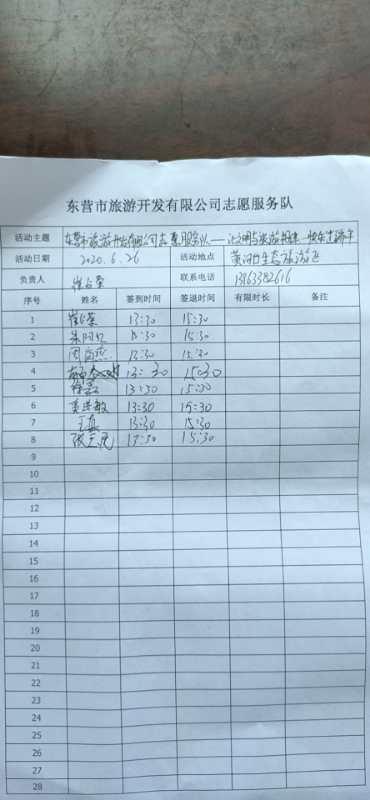 东营市旅游开发有限公司志愿服务队
活动主题 东营市旅游开发有限公司志愿服务队——让文明与旅游同行 快乐过端午
活动日期 2020.6.26 活动地点 黄河口生态旅游区
负责人 联系电话
序号 姓名 签到时间 签退时间 有限时长 备注
1 13:30 15:30
2 13:30 15:30
3 13:30 15:30
4 13:30 15:30
5 13:30 15:30
6 13:30 15:30
7 王 13:30 15:30
8 张 13:30 15:30
9
10
11
12
13
14
15
16
17
18
19
20
21
22
23
24
25
26
27
28